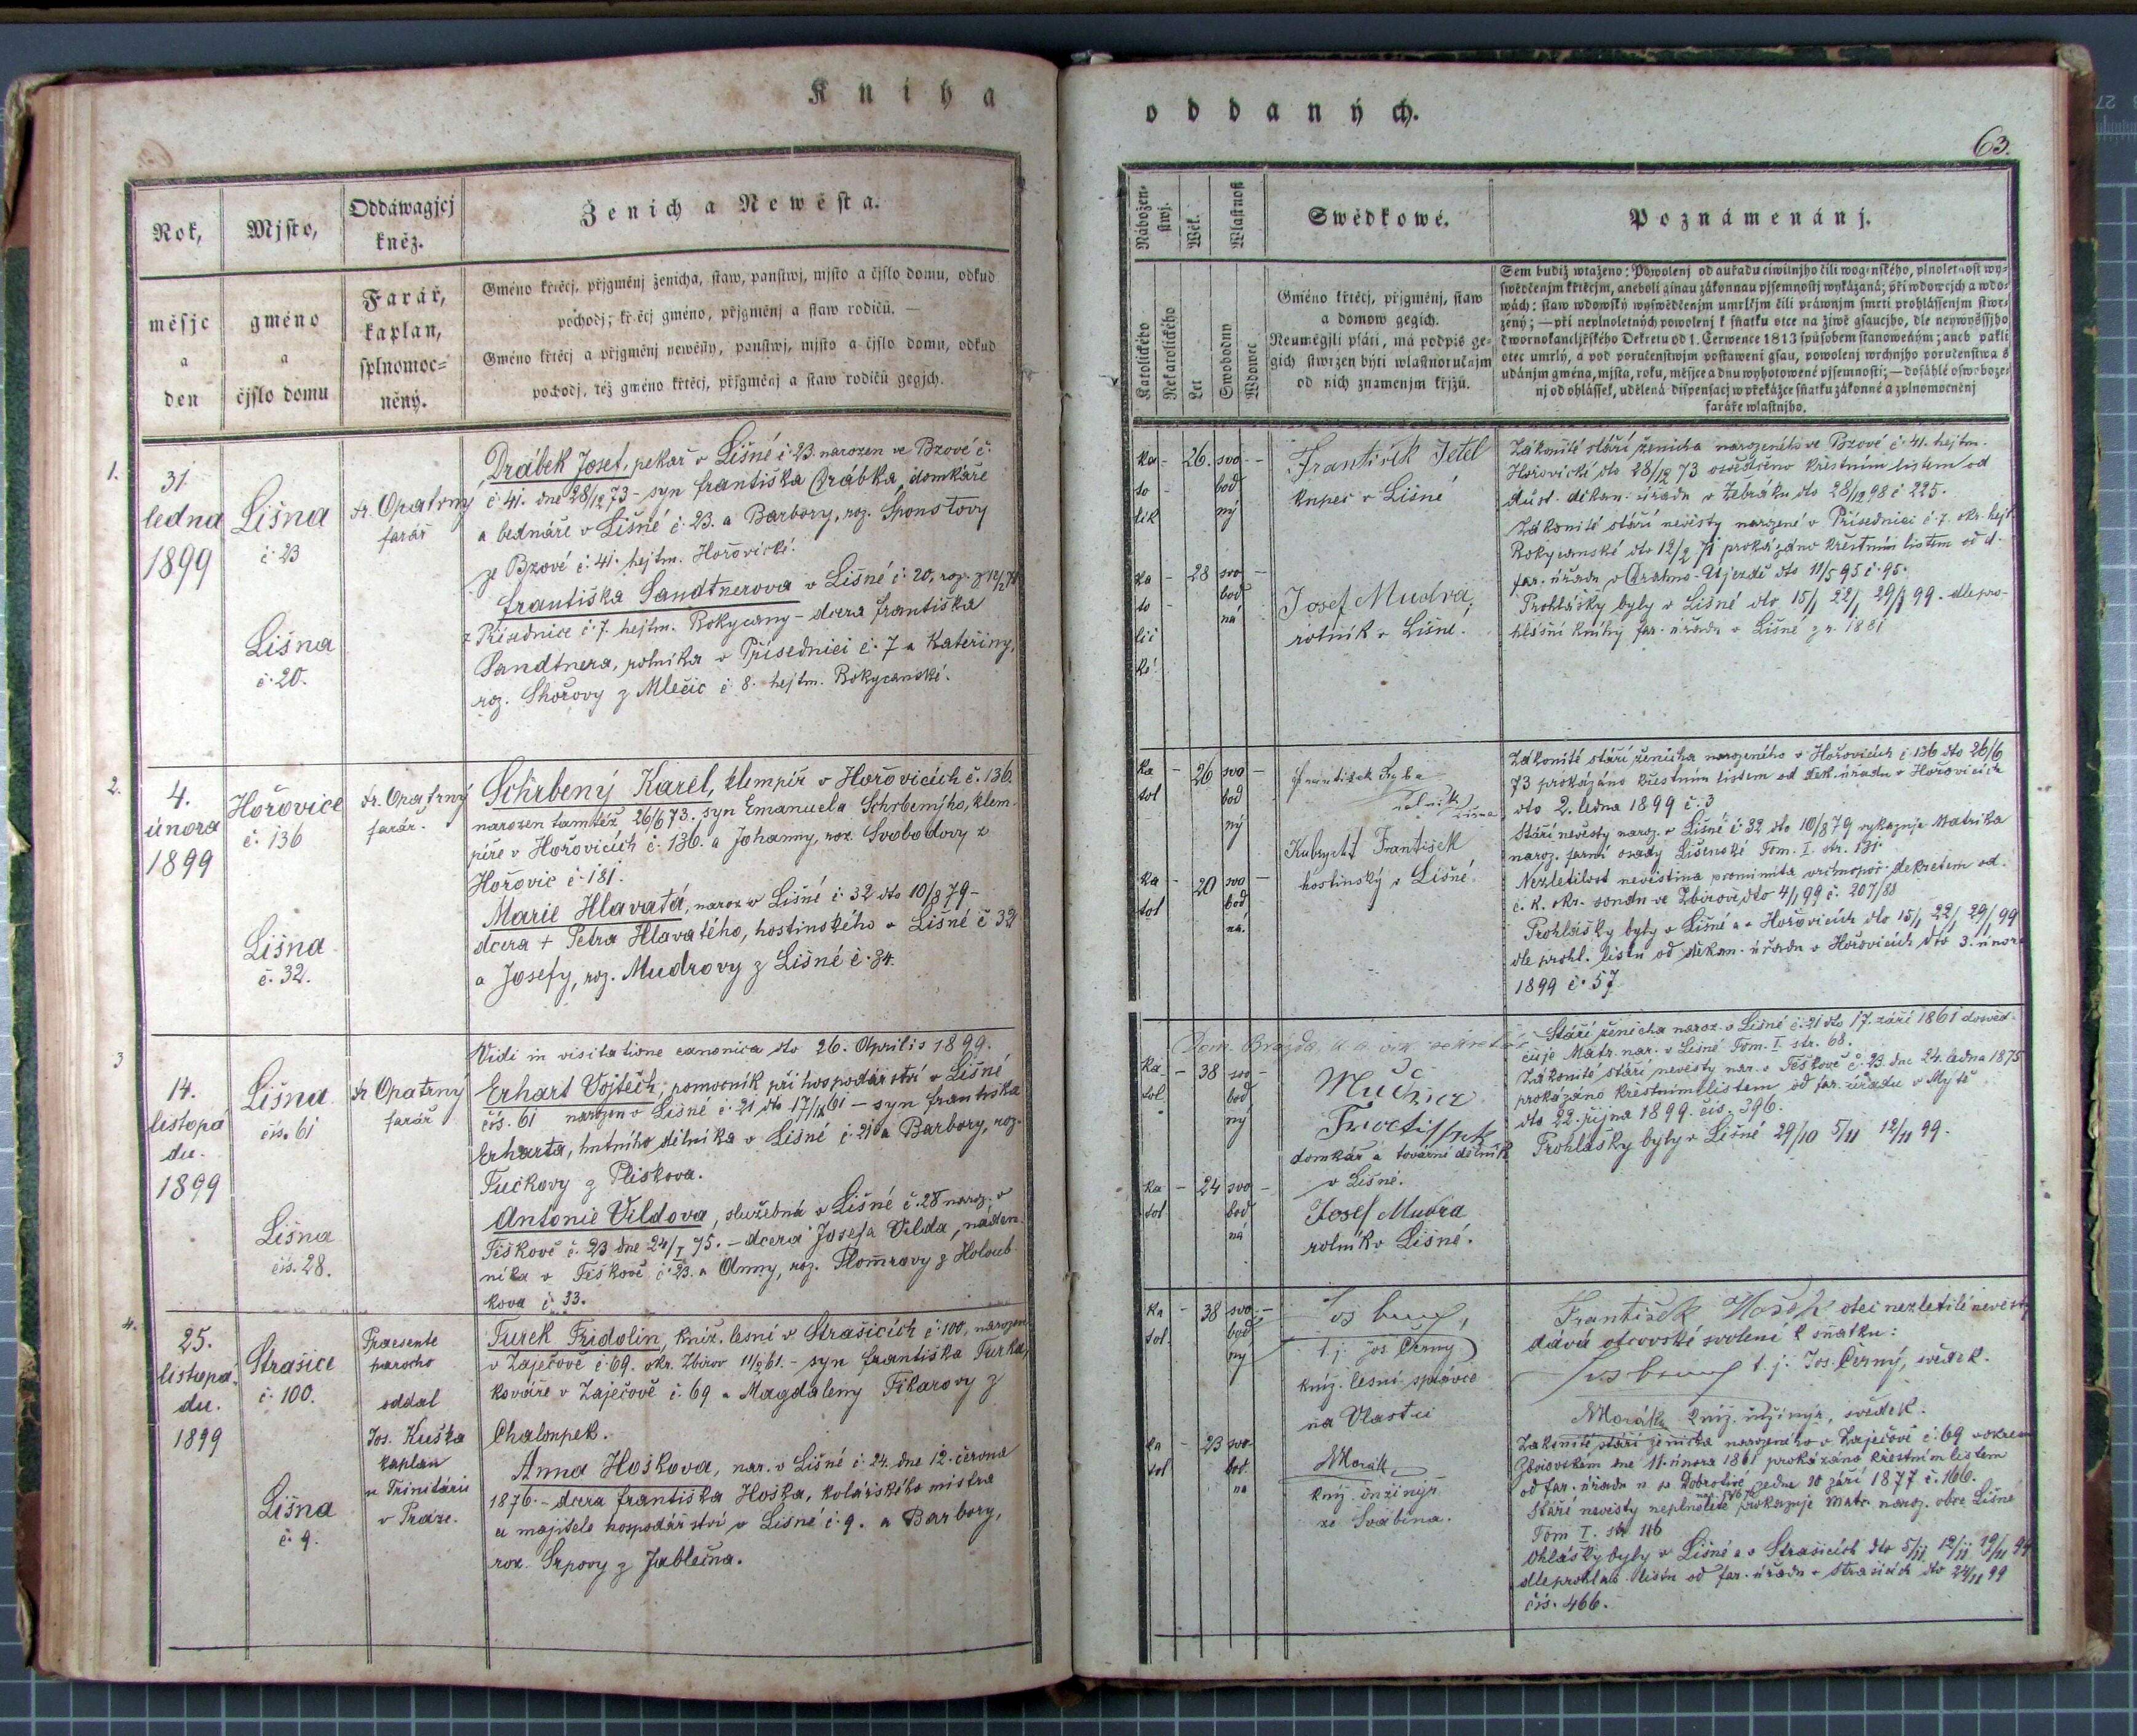 Kniha
oddaných.
63.
Rok,
měsjc
a
den
Mjsto,
gméno
a
čjslo domu
Oddáwagjcj
kněz.
Farář,
kaplan,
splnomoc=
něný.
Ženich a Newěsta.
Gméno křtěcj, přjgměnj ženicha, staw, panstwj, mjsto a čjslo domu, odkud
pochodj; křtěcj gméno, přjgměnj a staw rodičů. —
Gméno křtěcj a přjgměnj newěsty, panstwj, mjsto a čjslo domu, odkud
pochodj, též gméno křtěcj, přjgměnj a staw rodičů gegjch.
Nábožen-
stwj.
Wěk.
Wlastnost
Katolického
Nekatolického
Let
Swobodny
Wdowec
Swědkowé.
Gméno křtěcj, přjgměnj, staw
a domow gegich.
Neumějjli psáti, má podpis ge-
gich stwrzen býti wlastnoručnjm
od nich znamenjm křjžů.
Poznámenánj.
Sem budiž wtaženo: Powolenj od auřadu ciwilnjho čili wogenského, plnoletnost wy-
swědčenjm křtěcjm, anebolí ginau zákonnau pjsemnostj wykázaná; při wdowcjch a wdo-
wách: staw wdowský wyswědčenjm umrlčjm čili práwnjm smrti prohlássenjm stwr-
zený; — při neplnoletných powolenj k sňatku otce na žiwě gsaucjho, dle neywyššjho
dwornokancljřského Dekretu od 1. Čerwence 1813 spůsobem stanoweným; aneb pakli
otec umrlý, a pod poručenstwjm postaweni gsau, powolenj wrchnjho poručenstwa s
udánjm gména, mjsta, roku, měsjce a dnu wyhotowené pjsemnosti; — dosáhlé oswoboze-
nj od ohlášek, udělená dispensacj w překážce sňatku zákonné a zplnomocněnj
faráře wlastnjho.
1.
31
ledna
1899
Lišna
č. 23
Lišna
č. 20.
Fr. Opatrny
farář
Drábek Josef, pekař v Lišné č. 23. narozen ve Bzové č.
č. 41. dne 28/12 73 - syn Františka Drábka, domkáře
a bednáře v Lišné č. 23. a Barbory, roz. Šponstovy
ze Bzové č. 41. hejtm. Hořovické.
Františka Sandtnerova v Lišné č. 20, roz. z 12/2 71
z Přísednice č. 7. hejtm. Rokycany - dcera Františka
Sandtnera, rolníka v Přísednici č. 7 a Kateřiny,
roz. Skořovy z Mlečic č. 8. hejtm. Rokycanské.
ka - 26. svo -
to - bod
lik ný
ka - 28 svo -
to - bod
lic ná
ké.
František Jetel
kupec v Lišné
Josef Mudra,
rolník v Lišné.
Zákonité stáří ženicha narozeného ve Bzové č. 41. hejtm.
Hořovické dto 28/12 73 osvědčeno křestním listem od
důst. děkan. úřadu v Žebráku dto 28/12 98 č 225.
Zákonité stáří nevěsty narozené v Přísednici č. 7. okr. hejt.
Rokycanské dto 12/2 71 prokázáno křestním listem od d.
far. úřadu v Drahno-Újezdě dto 11/5 95 č. 95.
Prohlášky byly v Lišné dto 15/1 22/1 29/1 99. dle pro-
hlášní knihy far. úřadu v Lišné z r. 1881
2.
4.
února
1899
Hořovice
č. 136
Lišna
č. 32.
Fr. Opatrný
farář.
Schrbený Karel, klempíř v Hořovicích č. 136.
narozen tamtéž 26/6 73. syn Emanuela Schrbeného, klem-
píře v Hořovicích č. 136. a Johanny, roz. Svobodovy z
Hořovic č. 181.
Marie Hlavatá, naroz. v Lišné č. 32 dto 10/8 79 -
dcera + Petra Hlavatého, hostinského v Lišné č 32
a Josefy, roz. Mudrovy z Lišné č. 34.
ka - 26 svo -
tol bod
ný
ka - 20 svo -
tol bod
ná.
František Fyba
rolník
Lišna
Kubrycht František
hostinský v Lišné.
Zákonité stáří ženicha narozeného v Hořovicích č 136 dto 26/6
73 prokázáno křestním listem od děk. úřadu v Hořovicích
dto 2. ledna 1899 č. 3
Stáří nevěsty naroz. v Lišné č 32 dto 10/8 79 vykazuje Matrika
naroz. farní osady Lišenské Tom. I. str. 131.
Nezletilost nevěstina prominuta vrchnopor. dekretem od.
c. k. okr. soudu ve Zbirově dto 4/1 99 č. 207/88
Prohlášky byly v Lišné a v Hořovicích dto 15/1 22/1 29/1 99
dle prohl. listu od děkan. úřadu v Hořovicích dto 3. února
1899 č. 57
3
14.
listopa
du.
1899
Lišna
čís. 61
Lišna
čís. 28.
Fr Opatrný
farář
Vidi in visitatione canonica dto 26. Aprilis 1899.
Erhart Vojtěch, pomocník při hospodářství v Lišné
čís. 61 narozen v Lišné č. 21 dto 17/9 61 - syn Františka
Erharta, hutního dělníka v Lišné č. 21 a Barbory, roz.
Tučkovy z Plískova.
Antonie Vildova, služebná v Lišné č. 28 naroz. v
Těškově č. 23 dne 24/I 75. - dcera Josefa Vilda, náden-
níka v Těškově č 23. a Anny, roz. Plomrovy z Holoub-
kova č. 33.
Ka - 38 svo -
tol. bod
ný
ka - 24 svo -
tol bod
ná
domkář a tovarní dělník
v Lišné.
Josef Mudra
rolník v Lišné.
Stáří ženicha naroz. v Lišné č. 21 dto 17. září 1861 dosvěd-
čuje Matr. nar. v Lišné Tom. I str. 68.
Zákonité stáří nevěsty nar. v Těškově č. 23. dne 24. ledna 1875
prokázáno křestním listem od far. úřadu v Mýtě
dto 22. října 1899. čís. 396.
Prohlášky byly v Lišné 29/10 5/11 12/11 99.
4.
25.
listopa-
du.
1899
Strašice
č. 100.
Lišna
č. 9.
Praesente
parocho
oddal
Jos. Kuška
kaplan
u Trinitárii
v Praze.
Turek Fridolin, kníž. lesní v Strašicích č. 100, narozen
v Zaječově č. 69. okr. Zbirov 11/2 61. - syn Františka Turka,
kováře v Zaječově č. 69 a Magdaleny Fikarovy z
Chaloupek.
Anna Hoškova, nar. v Lišné č. 24. dne 12. června
1876. - dcera Františka Hoška, kolářského mistra
a majitele hospodářství v Lišné č. 9. a Barbory,
roz. Srpovy z Jablečna.
ka - 38 svo. -
tol. bod
ný
ka - 23 svo-
tol bod.
na
t. j. Jos Černý
kníž. lesní správce
na Vlastci
Morák
kníž. inžinýr
ze Švabína.
František Hošek otec nezletilé nevěsty
dává otcovské svolení k sňatku:
t. j. Jos. Černý, svědek.
Morák kníž. inžinýr, svědek.
Zákonité stáří ženicha narozeného v Zaječově č. 69 v okrese
Zbirovském dne 11. února 1861 prokázáno křestním listem
od far. úřadu u sv Dobrotivé ze dne 20 září 1877 č. 166.
Stáří nevěsty neplnoleté prokazuje Matr. naroz. obce Lišné
Tom I. str. 116
Ohlášky byly v Lišné a v Strašicích dto 5/11 12/11 19/11 99
dle prohlaš. listu od far. úřadu v Strašicích dto 24/11 99
čís. 466.